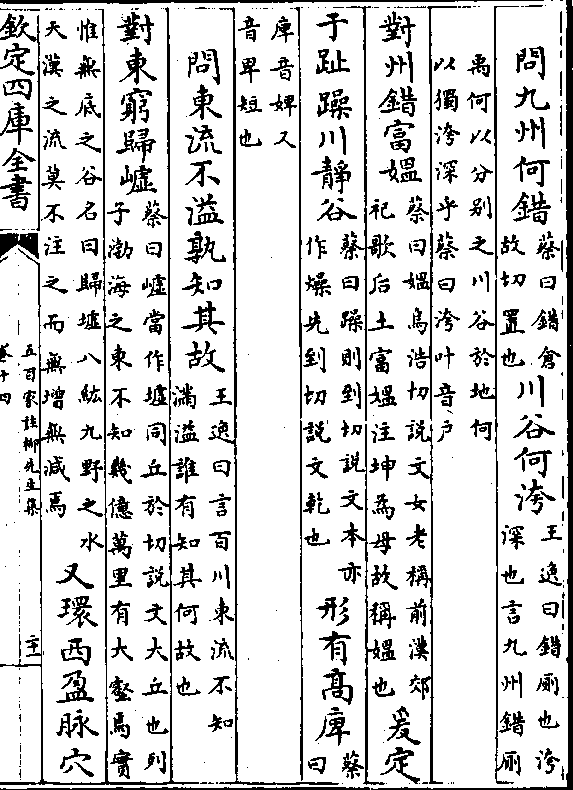 問九州何錯
蔡曰錯倉
故切置也
川谷何洿
王逸曰錯厠也洿
深也言九州錯厠
禹何以分别之川谷於地何
以獨洿深乎蔡曰洿叶音户
對州錯富媪
蔡曰媪烏浩切説文女老稱前漢郊
祀歌后土富媪注坤為母故稱媪也
爰定
于趾躁川靜谷
蔡曰躁則到切説文本亦
作燥先到切説文乾也
形有高庳
蔡曰
庳音婢又
音卑短也
問東流不溢孰知其故
王逸曰言百川東流不知
滿溢誰有知其何故也
對東窮歸
蔡曰當作墟同丘於切説文大丘也列
子渤海之東不知幾億萬里有大壑焉實
惟無底之谷名曰歸墟八紘九野之水
天漢之流莫不注之而無增無減焉
又環西盈脉穴
欽定四庫全書
五百家註柳先生集
卷十四
二十一